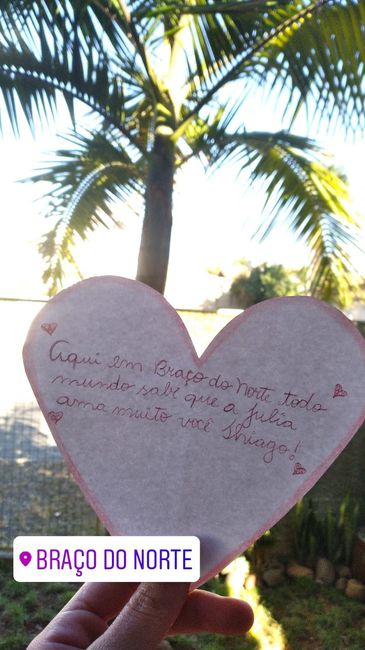 Aqui em Braço do Norte todo
mundo sabe que a Julia
ama muito você Thiago!
BRAÇO DO NORTE